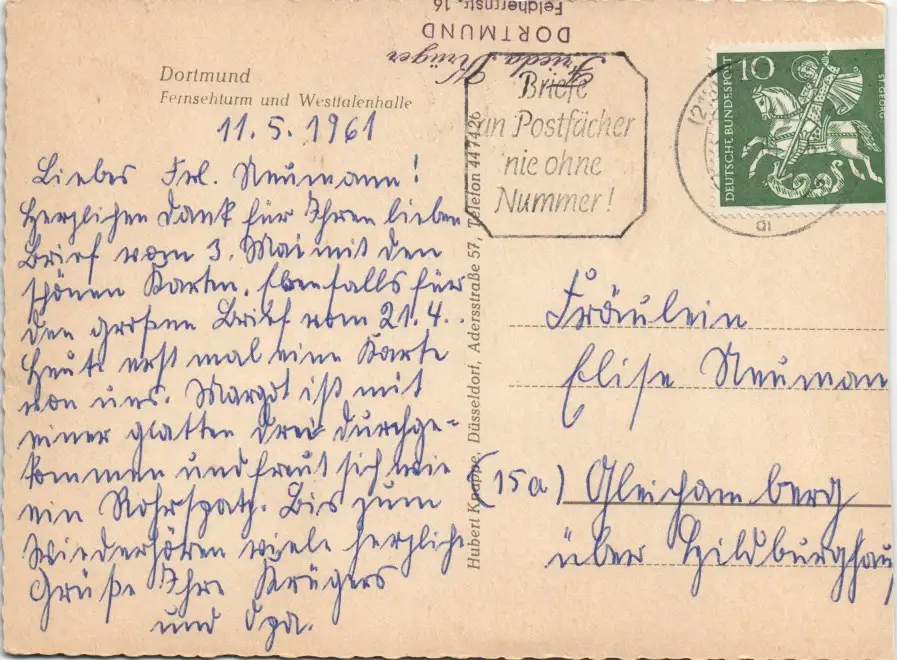 Feldherrnstr. 16
DORTMUND
Frieda Krüger
Dortmund
Fernsehturm und Westfalenhalle
11.5.1961
Liebes Frl. Neumann!
Herzlichen Dank für Ihren lieben
Brief vom 3. Mai mit den
schönen Karten. Ebenfalls für
den großen Brief vom 21.4..
Heute erst mal eine Karte
von uns. Margot ist mit
einer glatten drei durchge-
kommen und freut sich wie
ein Rohrspatz. Bis zum
Wiederhören viele herzliche
Grüße Ihre Krügers
und Opa.
Hubert Knappe, Düsseldorf, Adersstraße 57, Telefon 447426
Briefe
an Postfächer
nie ohne
Nummer!
(21b)
ai
10
DEUTSCHE BUNDESPOST
ST. GEORG
Fräulein
Elise Neuman
(15a) Gleichamberg
über Hildburghau